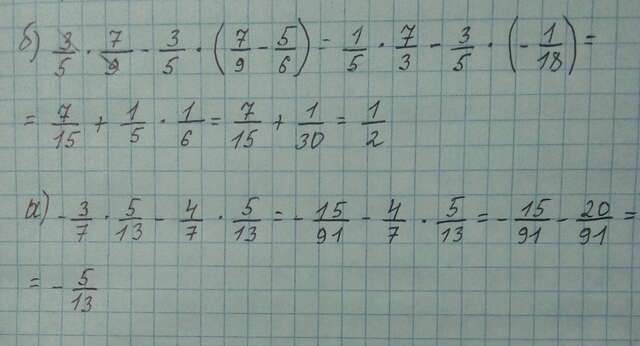 б) 3/5 · 7/9 - 3/5 · (7/9 - 5/6) = 1/5 · 7/3 - 3/5 · (- 1/18) =
= 7/15 + 1/5 · 1/6 = 7/15 + 1/30 = 1/2
а) - 3/7 · 5/13 - 4/7 · 5/13 = - 15/91 - 4/7 · 5/13 = - 15/91 - 20/91 =
= - 5/13